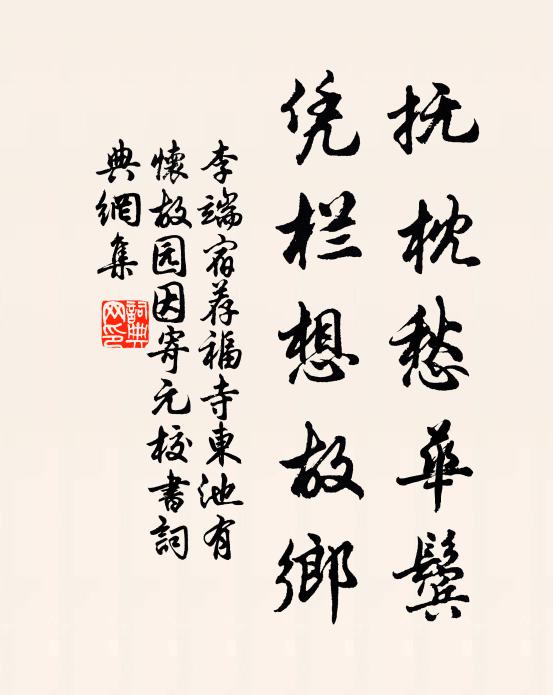 抚枕愁华鬓
凭栏想故鄉
李端宿荐福寺東池有
懷故园因寄元校書詞
典網集
詞典
网印